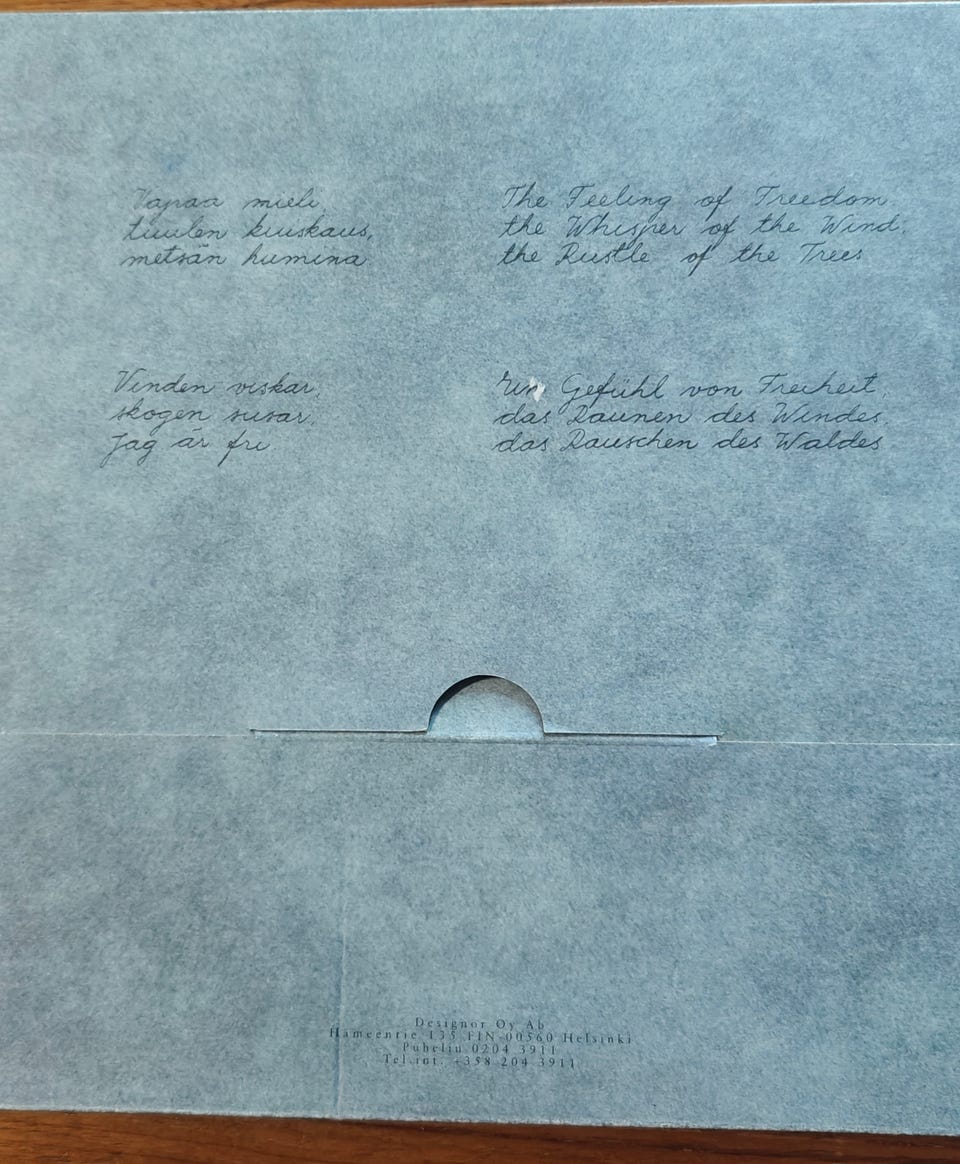 Vapaa mieli,
tuulen kuiskaus,
metsän humina
The Feeling of Freedom,
the Whisper of the Wind,
the Rustle of the Trees
Vinden viskar,
skogen susar,
Jag är fri
Ein Gefühl von Freiheit,
das Raunen des Windes,
das Rauschen des Waldes
Designor Oy Ab
Hämeentie 135 FIN-00560 Helsinki
Puhelin 0204 3911
Tel.int. +358 204 3911